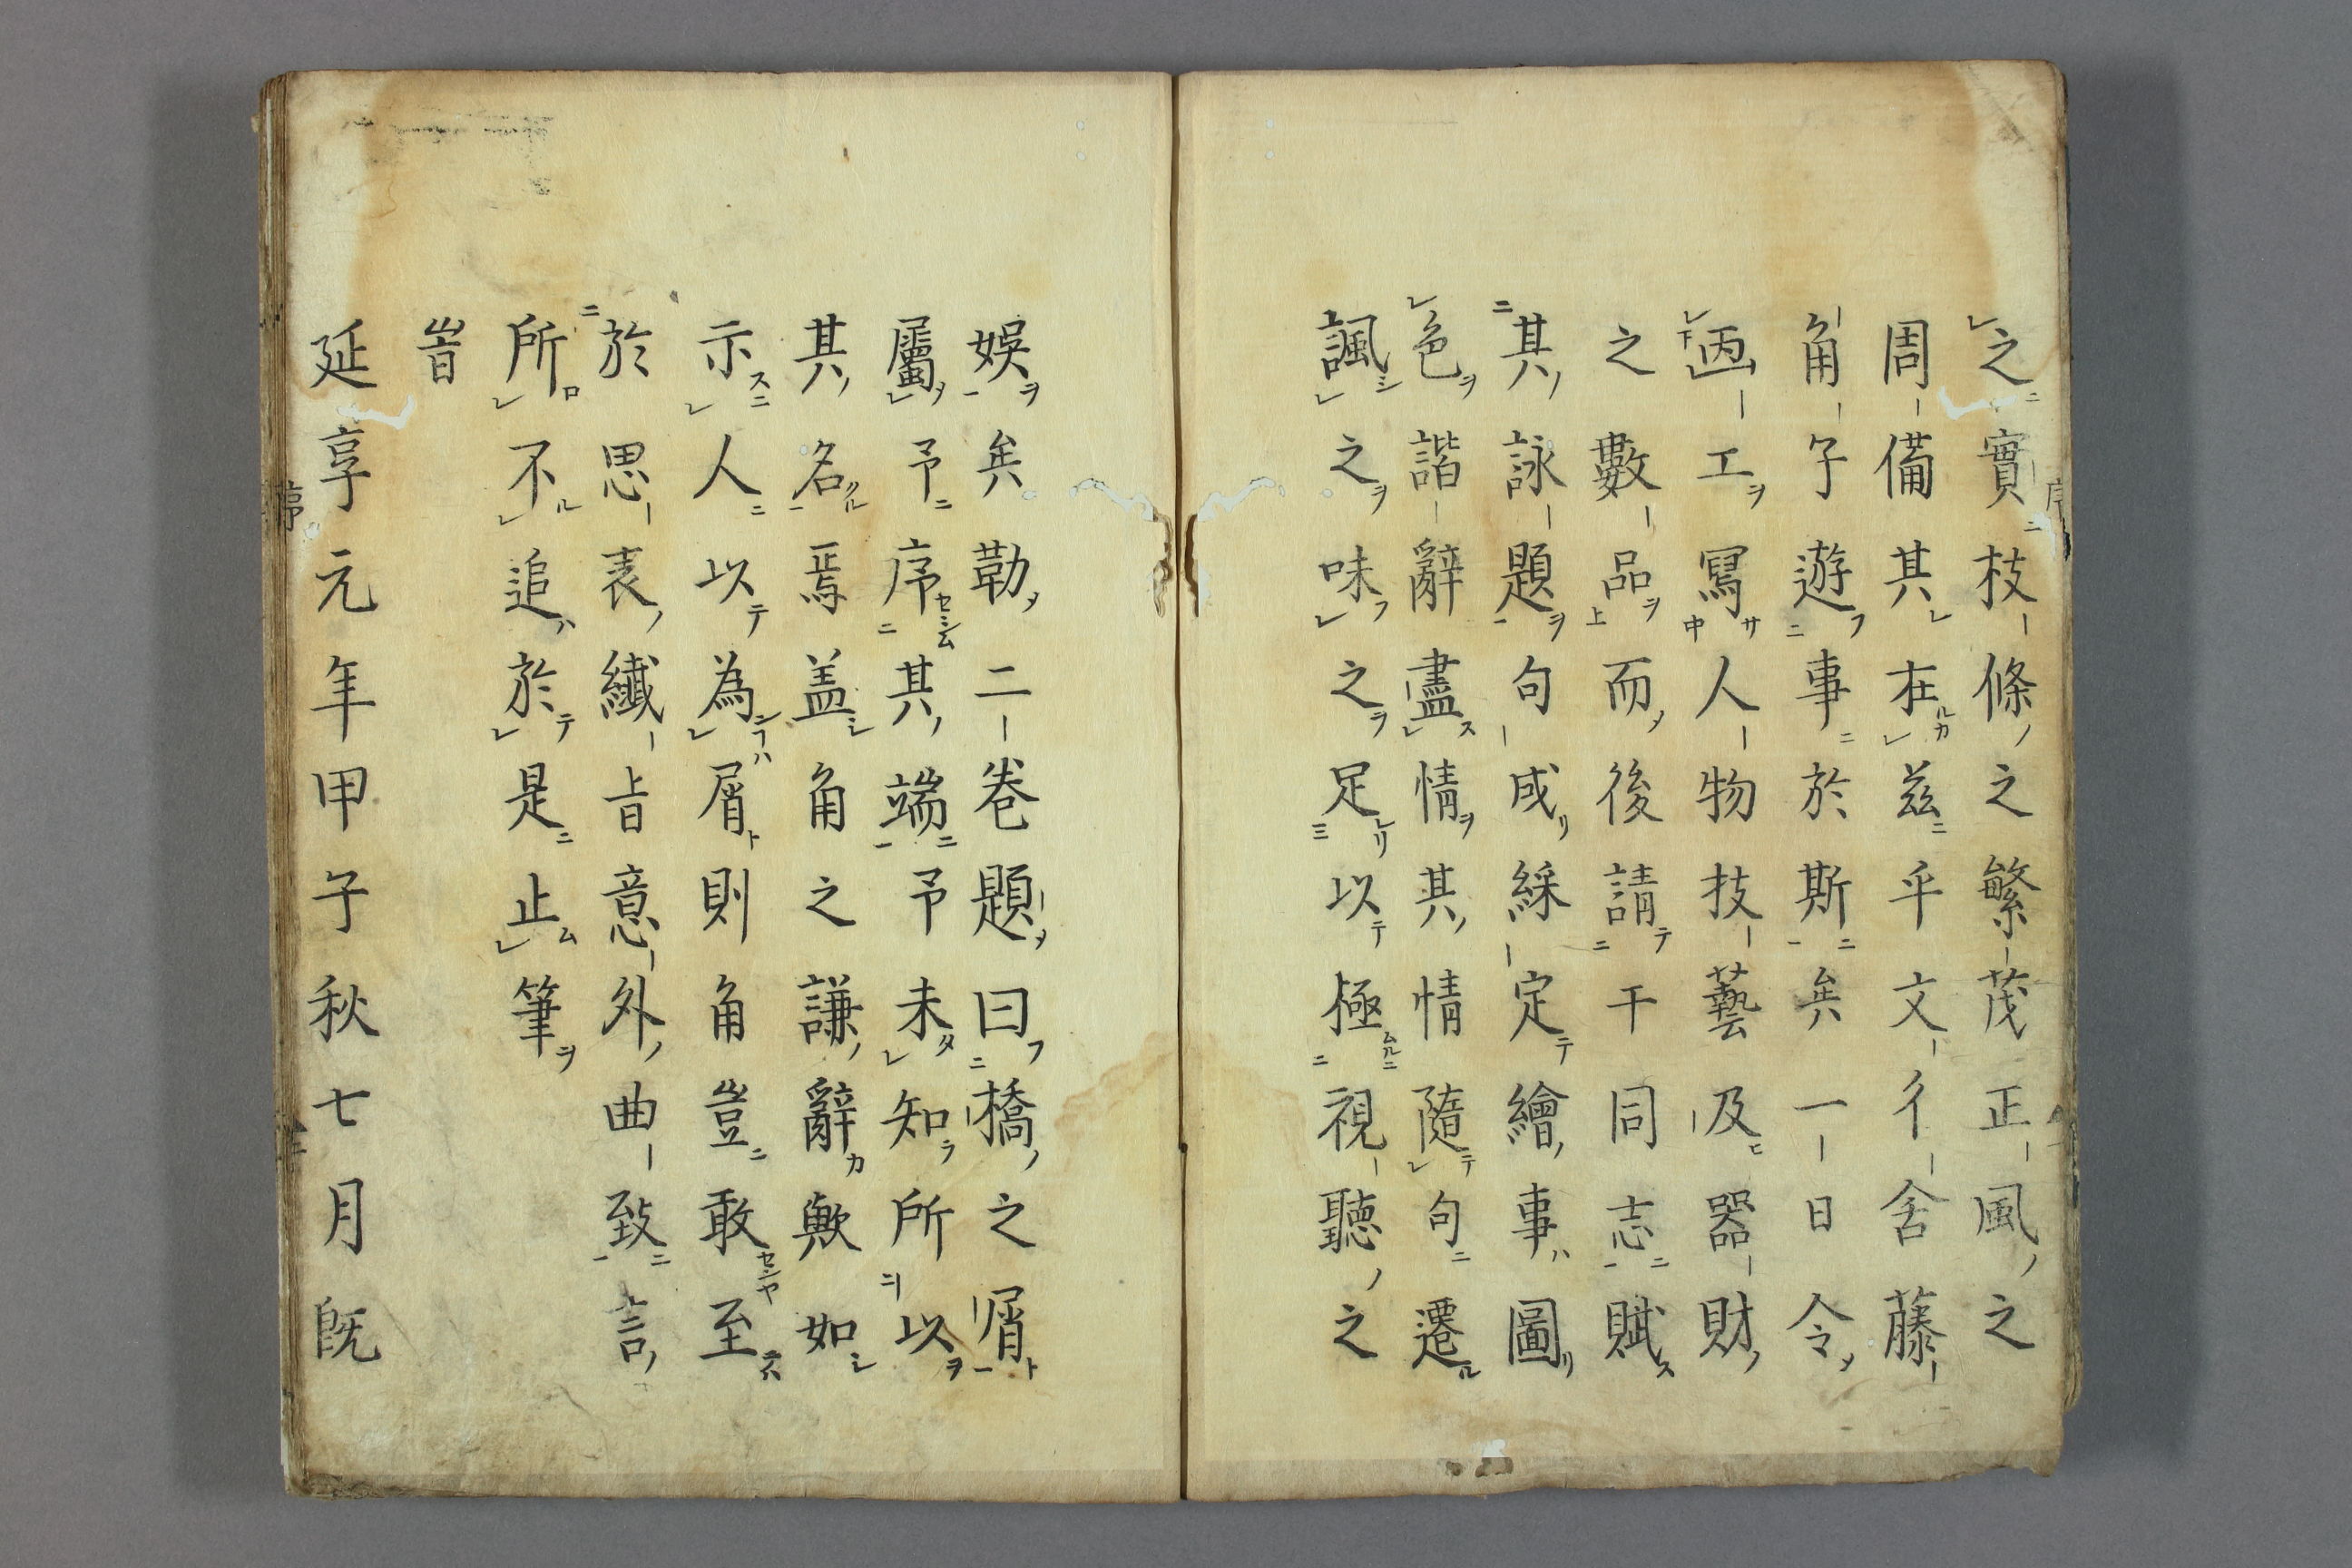 之實枝條之繁茂正風之
周備其在茲乎文彳舍藤
角子遊事於斯矣一日令
画工寫人物技藝及器財
之數品而後請干同志賦
其詠題句成綵定繪事圖
色諧辭盡情其情隨句遷
諷之味之足以極視聽之
娯矣勒二卷題曰橋之屑
屬予序其端予未知所以
其名焉盖角之謙辭歟如
示人以為屑則角豈敢至
於思表纎旨意外曲致言
所不追於是止筆
旹
延享元年甲子秋七月既